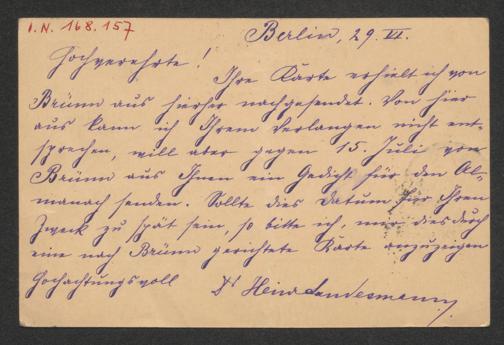 I.N. 168.157
Berlin, 29. VI.
Hochverehrte!
Ihre Karte erhielt ich von
Brünn aus hierher nachgesendet. Von hier
aus kann ich Ihrem Verlangen nicht ent-
sprechen, will aber gegen 15. Juli von
Brünn aus Ihnen ein Gedicht für den Al-
manach senden. Sollte dies Datum für Ihren
Zweck zu spät sein, so bitte ich, mir dies durch
eine nach Brünn gerichtete Karte anzuzeigen
Hochachtungsvoll
Dr Heinr Landesmann.